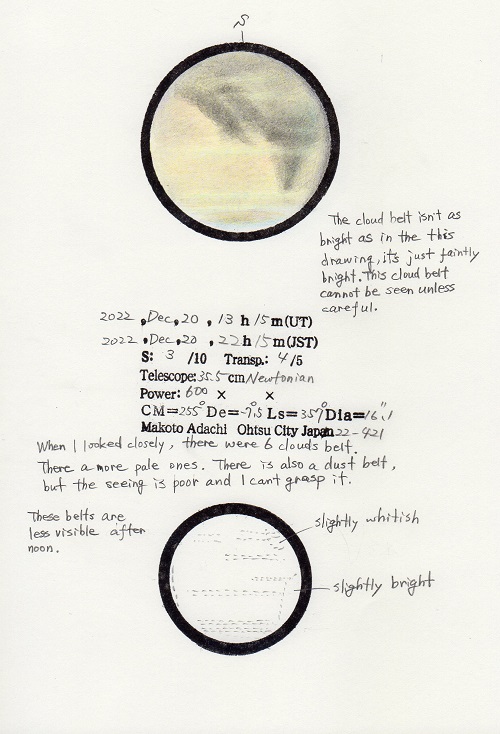 S
The cloud belt isn't as
bright as in the this
drawing, it's just faintly
bright. This cloud belt
cannot be seen unless
careful.
2022 , Dec, 20 , 13 h 15 m (UT)
2022 , Dec, 20 , 22 h 15 m (JST)
S: 3 /10 Transp.: 4/5
Telescope: 35.5 cm Newtonian
Power: 600 × ×
CM=255° De=-7°.5 Ls=357° Dia=16".1
Makoto Adachi Ohtsu City Japan 22-421
When I looked closely, there were 6 clouds belt.
There a more pale ones. There is also a dust belt,
but the seeing is poor and I cant grasp it.
These belts are
less visible after
noon.
slightly whitish
slightly bright